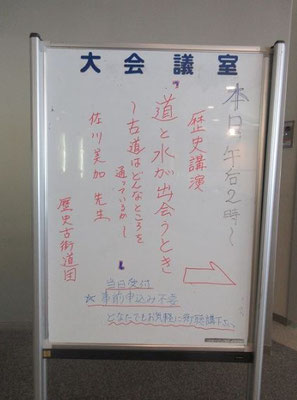 大会議室
本日：午后2時〜
歴史講演
道と水が出会うとき
〜古道はどんなところを
通っているか〜
佐川美加 先生
歴史古街道団
当日受付
事前申込み不要
どなたでもお気軽に御聴講下さい。